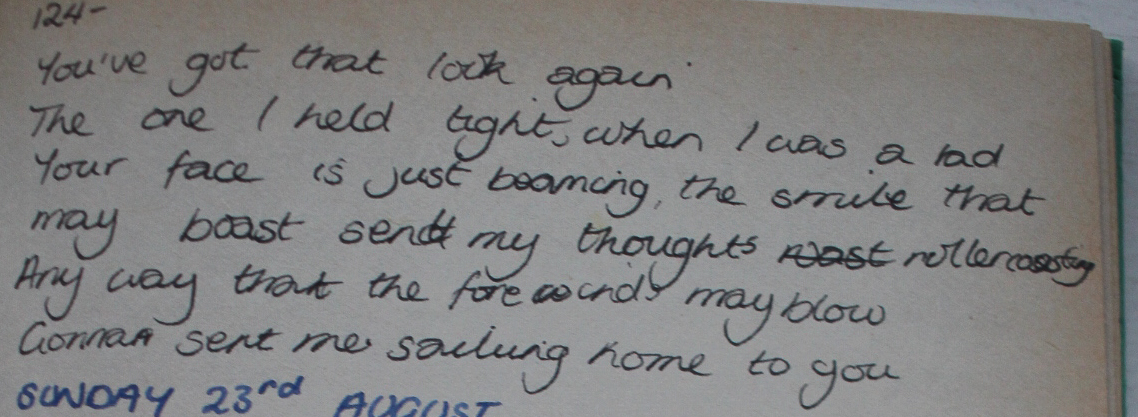 124-
You've got that look again
The one I held tight, when I was a lad
Your face is just beaming, the smile that
may boast send my thoughts roast rollercoasting
Any way that the fore winds may blow
Gonna sent me sailing home to you
SUNDAY 23rd AUGUST